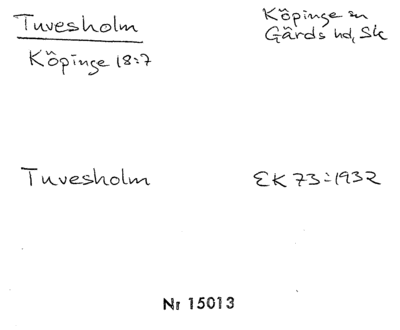 Tuvesholm
Köpinge sn
Gärds hd, Sk
Köpinge 18:7
Tuvesholm
EK 73:1932
Nr 15013